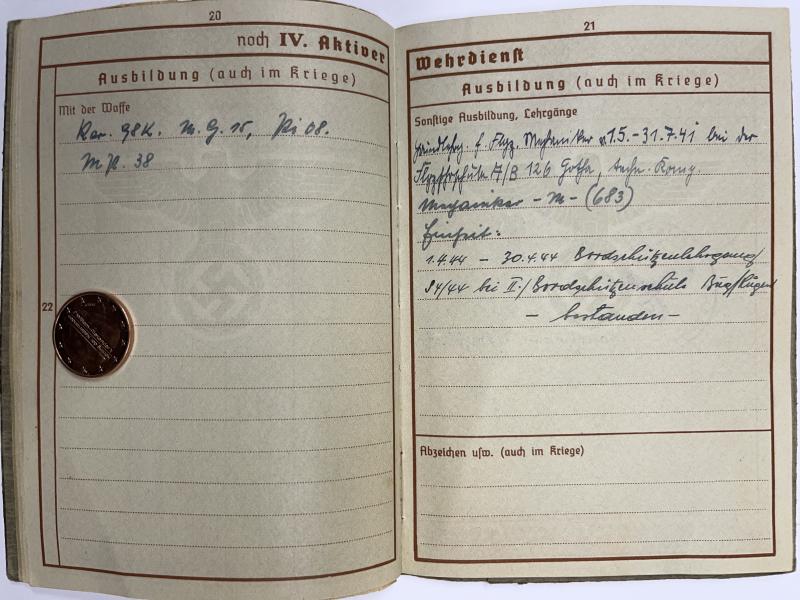 20
noch IV. Aktiver
Ausbildung (auch im Kriege)
Mit der Waffe
Kar. 98K. M.G. 15, Pi 08.
M.P. 38
22
21
Wehrdienst
Ausbildung (auch im Kriege)
Sonstige Ausbildung, Lehrgänge
Grundlehrg. f. Flzg. Mechaniker v. 1.5.-31.7.41 bei der
A/B 126 Gotha, techn. Komp.
Mechaniker - M - (683)
Einheit:
1.4.44 - 30.4.44 Bordschützenlehrgang
/44 bei II./Bordschützenschule
- bestanden -
Abzeichen usw. (auch im Kriege)